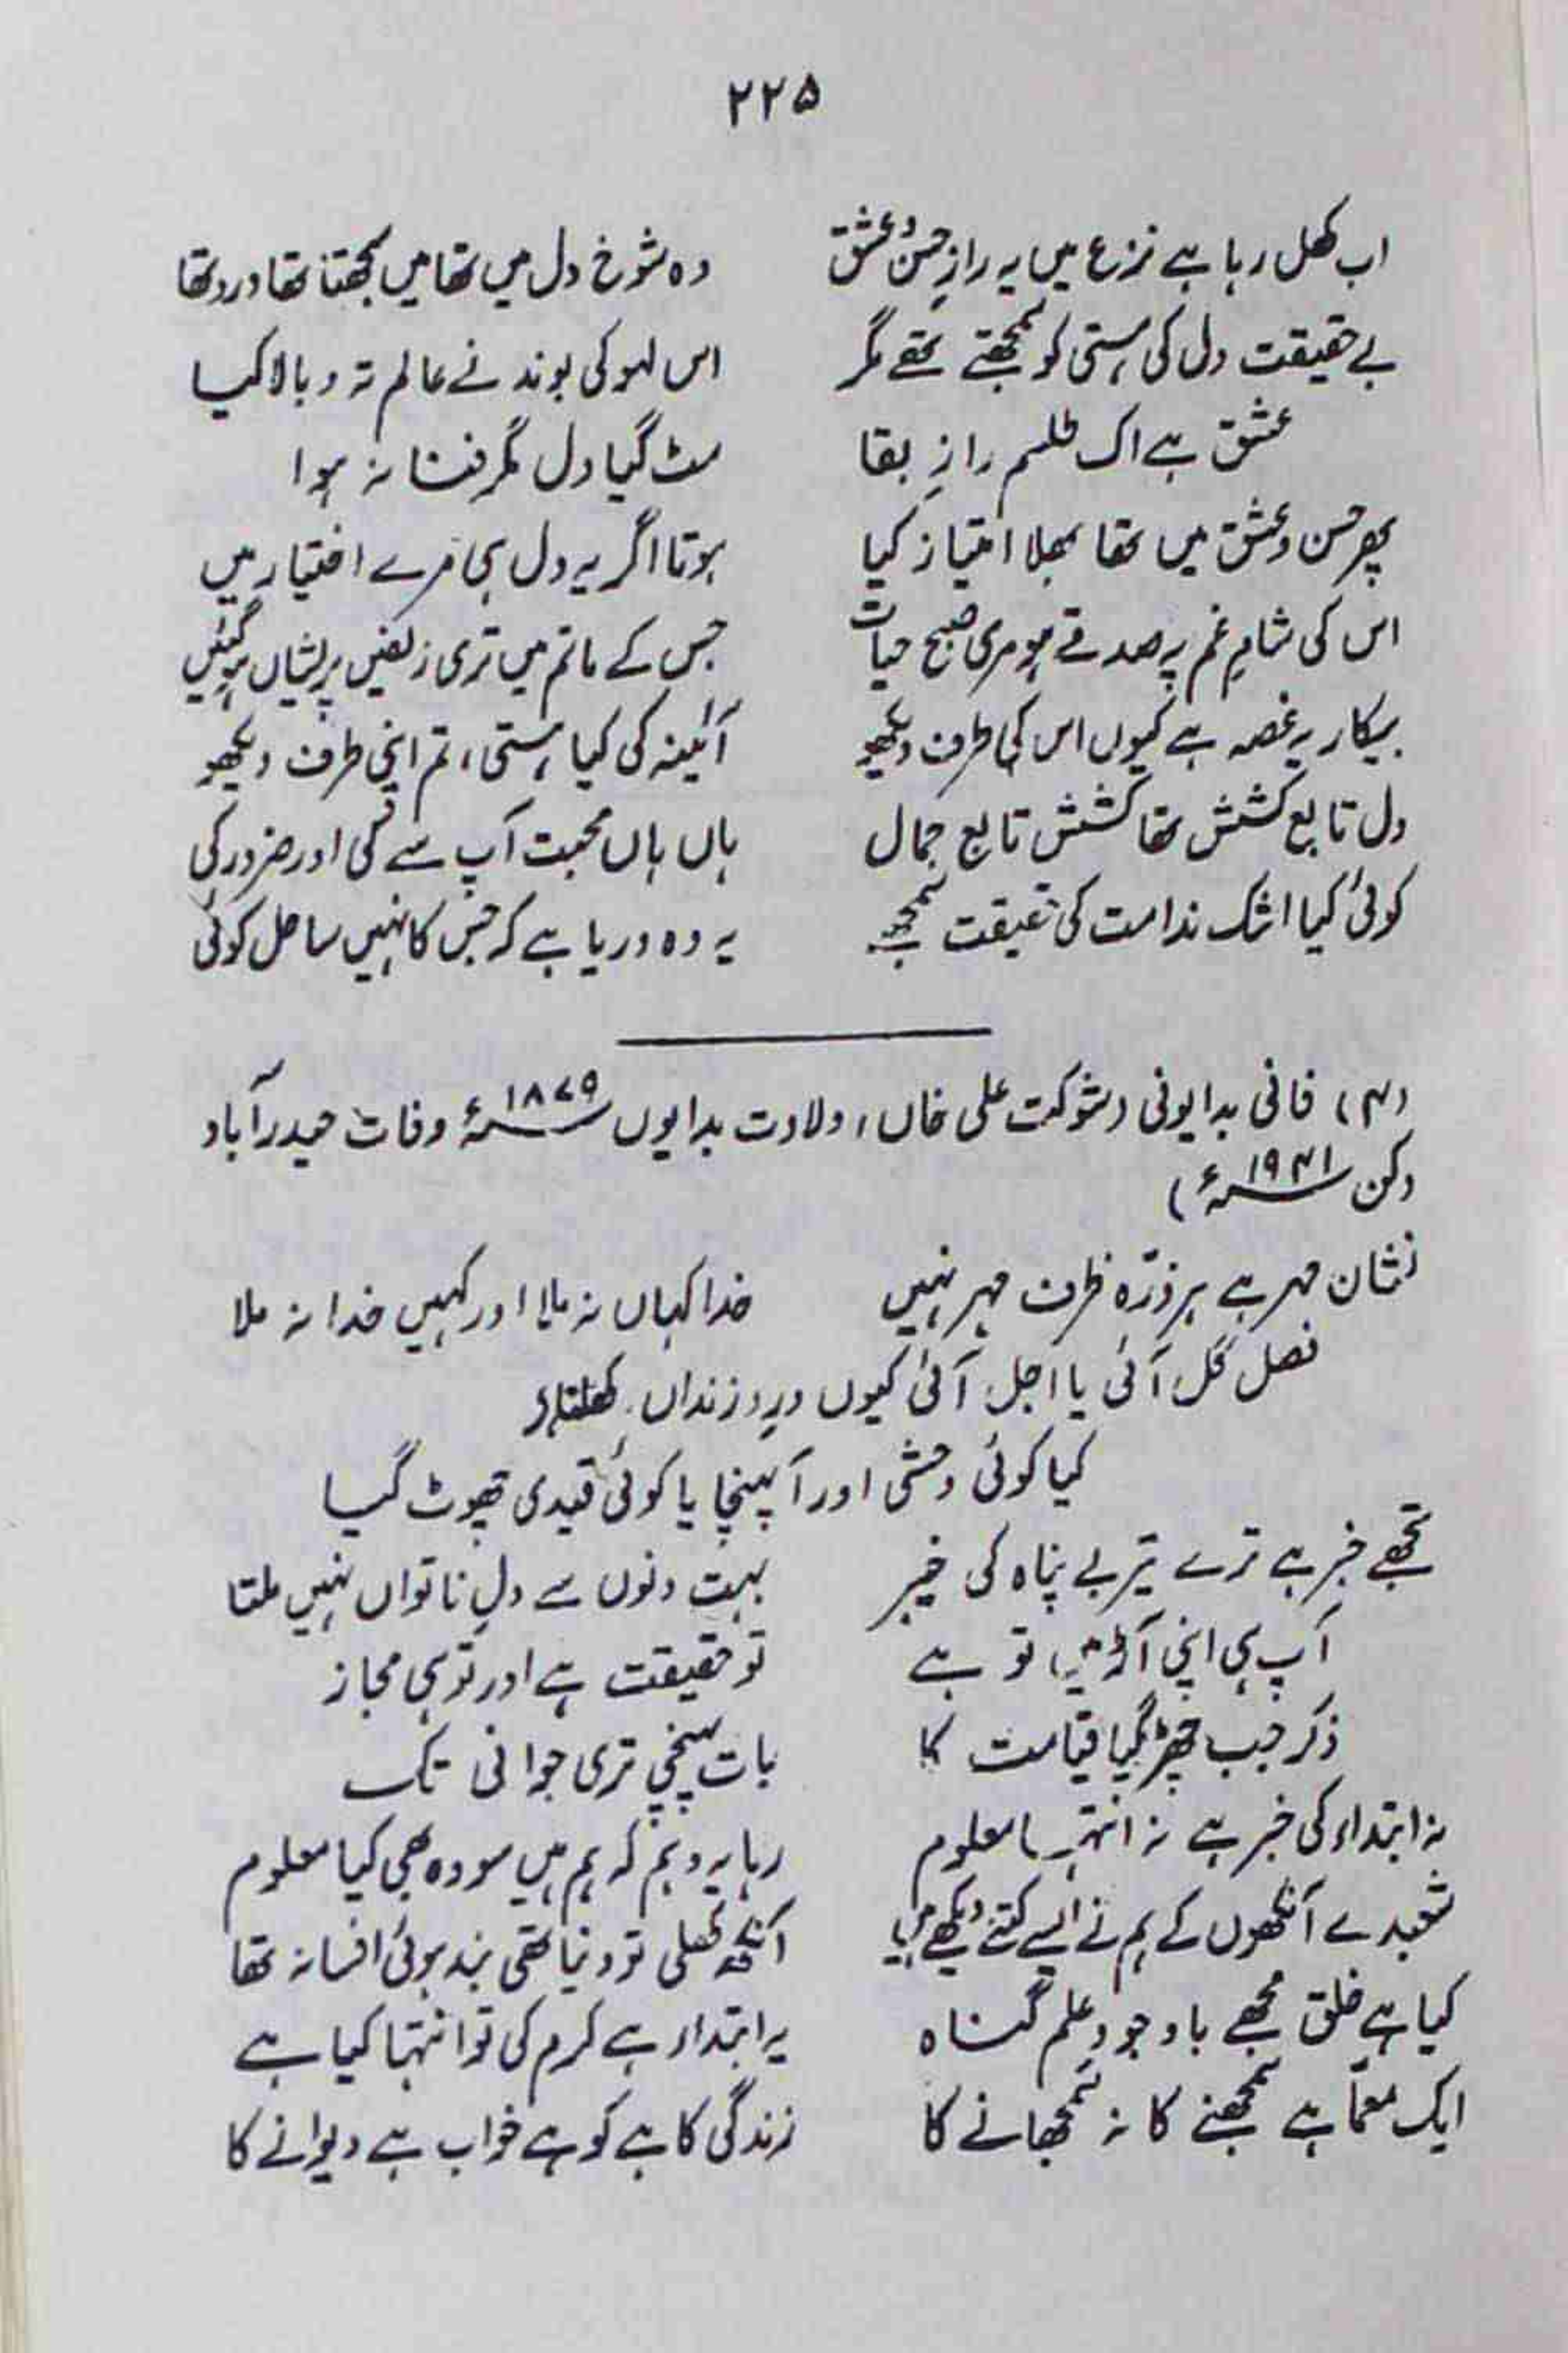 ۲۲۵
اب کھل رہا ہے نزع میں یہ رازِ حسن و عشق وہ شوخ دل میں تھا میں سمجھتا تھا درد تھا
بے حقیقت دل کی ہستی کو سمجھتے تھے مگر اس لہو کی بوند نے عالم تہ و بالا کیا
عشق ہے اک طلسم رازِ بقا مٹ گیا دل مگر فنا نہ ہوا
پھر حسن و عشق میں تھا بھلا امتیاز کیا ہوتا اگر یہ دل ہی مرے اختیار میں
اس کی شامِ غم پہ صدقے ہو مری صبح حیات جس کے ماتم میں تری زلفیں پریشاں ہو گئیں
بیکار یہ غصہ ہے کیوں اس کی طرف دیکھو آئینہ کی کیا ہستی، تم اپنی طرف دیکھو
دل تابع کشش تھا کشش تابع جمال ہاں ہاں محبت آپ سے کی اور ضرور کی
کوئی کیا اشک ندامت کی حقیقت سمجھے یہ وہ دریا ہے کہ جس کا نہیں ساحل کوئی
(۴) فانی بدایونی (شوکت علی خاں، ولادت بدایوں ۱۸۷۹ء وفات حیدرآباد
دکن ۱۹۴۱ء)
نشان مہر ہے ہر ذرّہ ظرف مہر نہیں خدا کہاں نہ ملا اور کہیں خدا نہ ملا
فصل گل آئی یا اجل آئی کیوں درِ زنداں کھلتا ہے
کیا کوئی وحشی اور آ پہنچا یا کوئی قیدی چھوٹ گیا
تجھے خبر ہے ترے تیر بے پناہ کی خیر بہت دنوں سے دلِ ناتواں نہیں ملتا
آپ ہی اپنی آڑ میں تو ہے تو حقیقت ہے اور تو ہی مجاز
ذکر جب چھڑ گیا قیامت کا بات پہنچی تری جوانی تک
نہ ابتداء کی خبر ہے نہ انتہا معلوم رہا یہ وہم کہ ہم ہیں سو وہ بھی کیا معلوم
شعبدے آنکھوں کے ہم نے ایسے کتنے دیکھے ہیں آنکھ کھلی تو دنیا تھی بند ہوئی افسانہ تھا
کیا ہے خلق مجھے باوجود علم گناہ یہ ابتداء ہے کرم کی تو انتہا کیا ہے
ایک معمّا ہے سمجھنے کا نہ سمجھانے کا زندگی کاہے کو ہے خواب ہے دیوانے کا